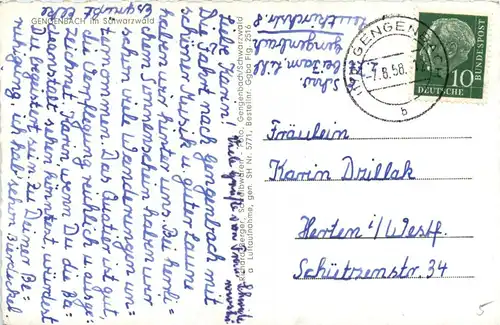 GENGENBACH im Schwarzwald
Liebe Karin!
Die Fahrt nach Gengenbach mit
schöner Musik u. guter Laune
haben wir hinter uns. Bei herrli-
chem Sonnenschein haben wir
schon viele Wanderungen un-
ternommen. Das Quatier ist gut,
die Verpflegung reichlich u. ausge-
zeichnet. Karin wenn Du die
sehen könntest würdest
Du begeistert sein. Zu Deiner Be-
ruhigung, ich hab schon
Gengenbach/Schwarzwald
gen. SH Nr. 5771, Bestellnr. Ggbia Flg. 2516
Abs.
bei Fam.
Gengenbach
GENGENBACH
-7.8.58.
b
DEUTSCHE
BUNDESPOST
10
Fräulein
Karin Drillak
Herten i/Westf.
Schützenstr. 34
5